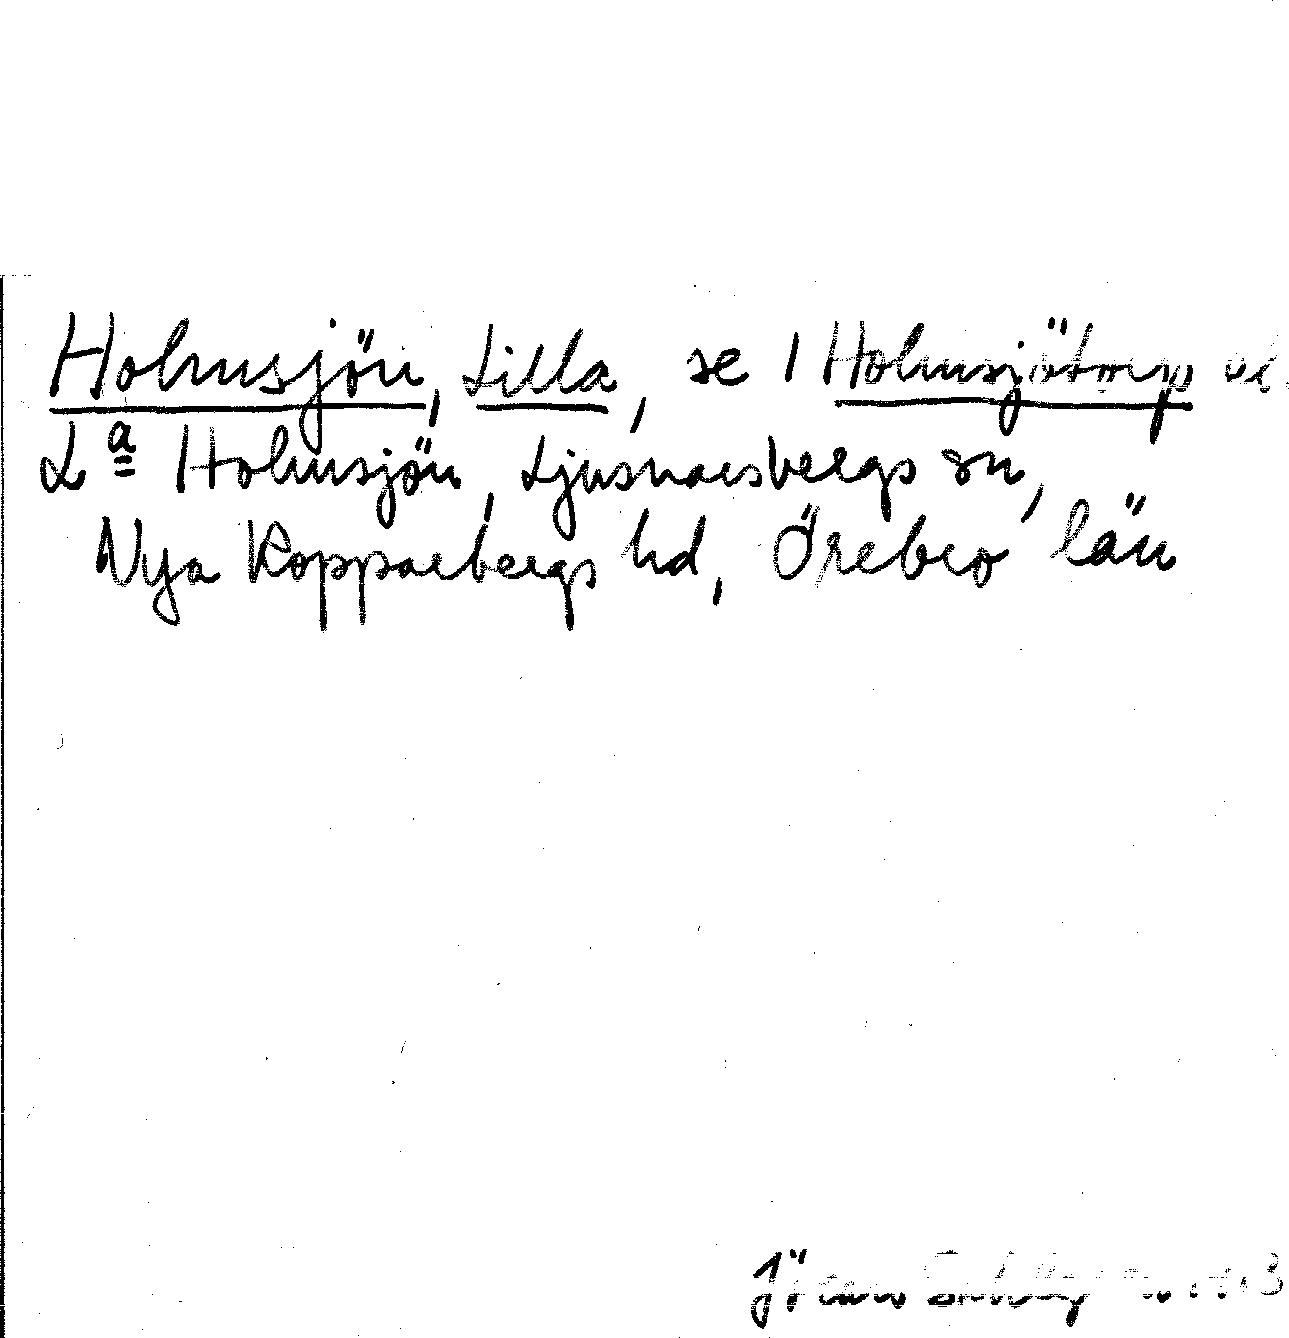 Holmsjön, Lilla, se 1 Holmsjötorp vi
Lª Holmsjön, Ljusnarsbergs sn,
Nya Kopparbergs hd, Örebro län
Jöran